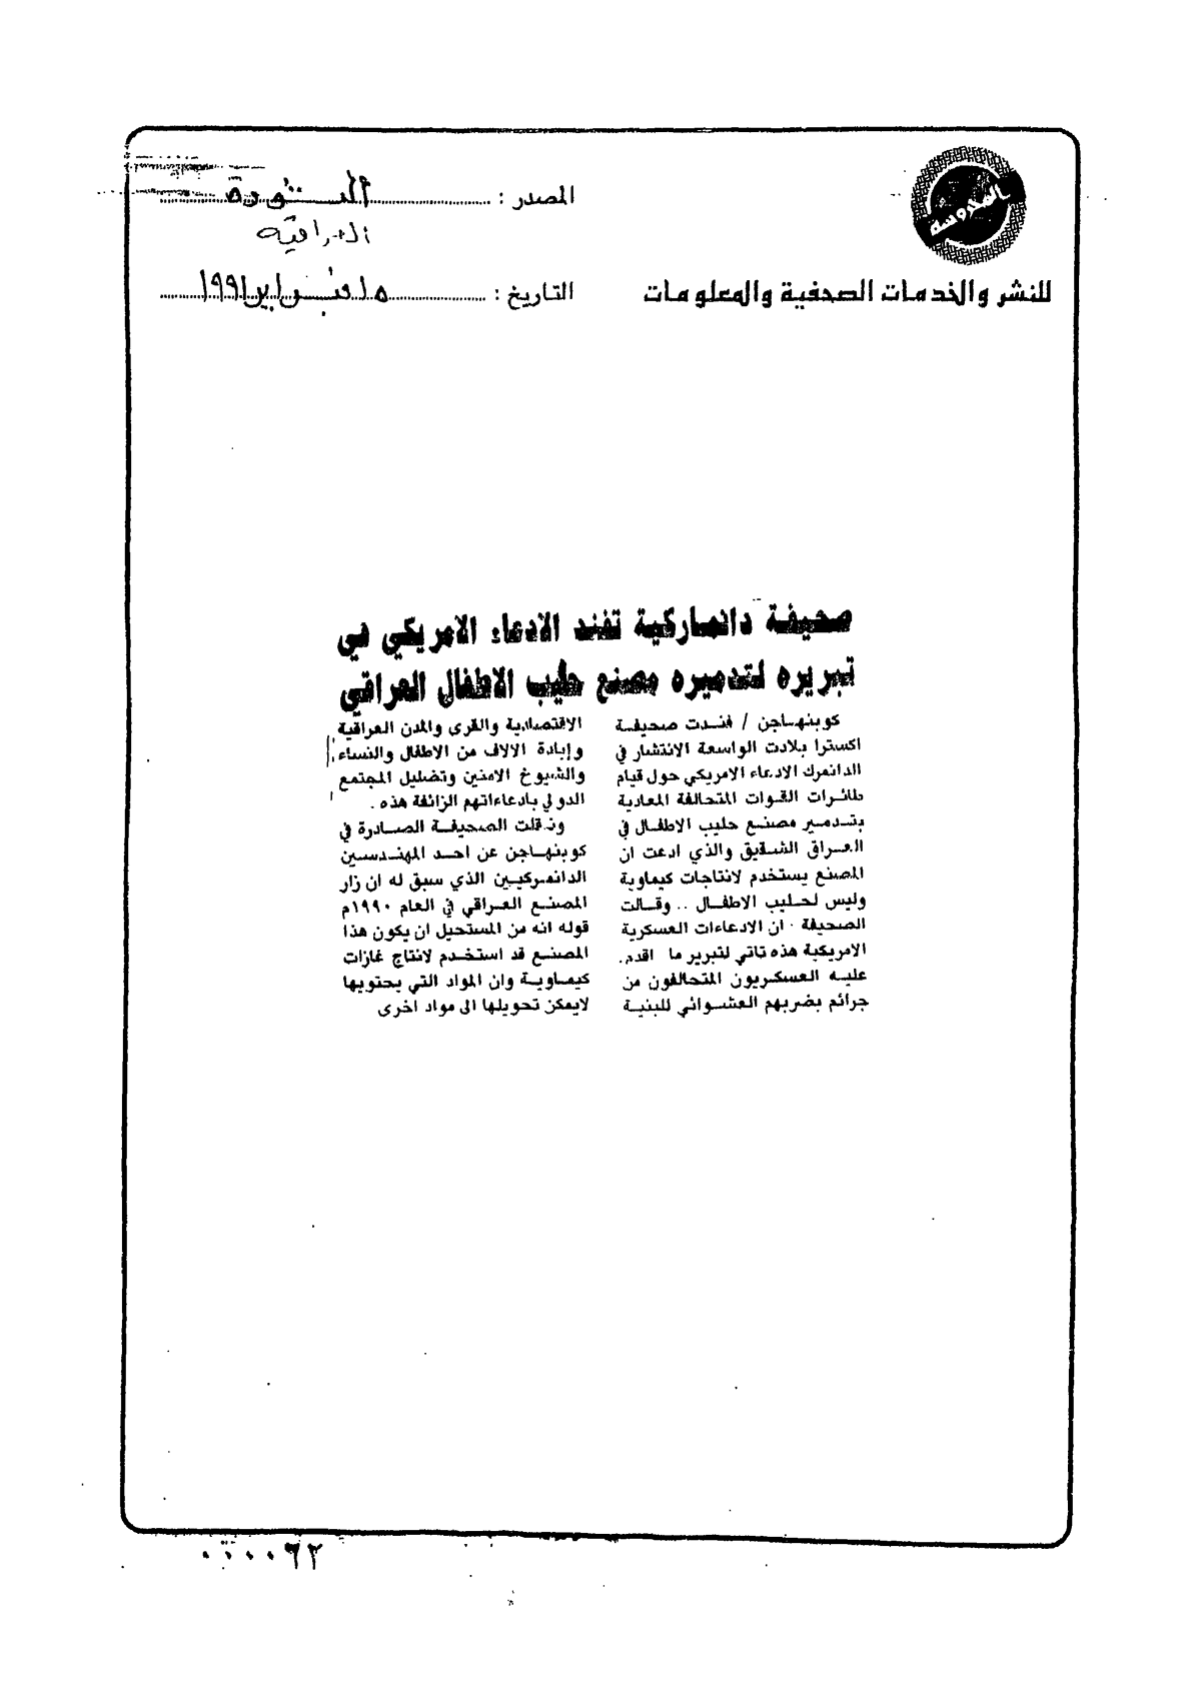 المحروسة
للنشر والخدمات الصحفية والمعلومات
المصدر : الثورة
العراقية
التاريخ : ١٥ فبراير ١٩٩١
صحيفة دانماركية تفند الادعاء الامريكي في
تبريره لتدميره مصنع حليب الاطفال العراقي
كوبنهاجن / فندت صحيفة
اكسترا بلادت الواسعة الانتشار في
الدانمرك الادعاء الامريكي حول قيام
طائرات القوات المتحالفة المعادية
بتدمير مصنع حليب الاطفال في
العراق الشقيق والذي ادعت ان
المصنع يستخدم لانتاجات كيماوية
وليس لحليب الاطفال .. وقالت
الصحيفة ان الادعاءات العسكرية
الامريكية هذه تاتي لتبرير ما اقدم
عليه العسكريون المتحالفون من
جرائم بضربهم العشوائي للبنية
الاقتصادية والقرى والمدن العراقية
وإبادة الالاف من الاطفال والنساء
والشيوخ الامنين وتضليل المجتمع
الدولي بادعاءاتهم الزائفة هذه .
ونقلت الصحيفة الصادرة في
كوبنهاجن عن احد المهندسين
الدانمركيين الذي سبق له ان زار
المصنع العراقي في العام ١٩٩٠م
قوله انه من المستحيل ان يكون هذا
المصنع قد استخدم لانتاج غازات
كيماوية وان المواد التي يحتويها
لايمكن تحويلها الى مواد اخرى